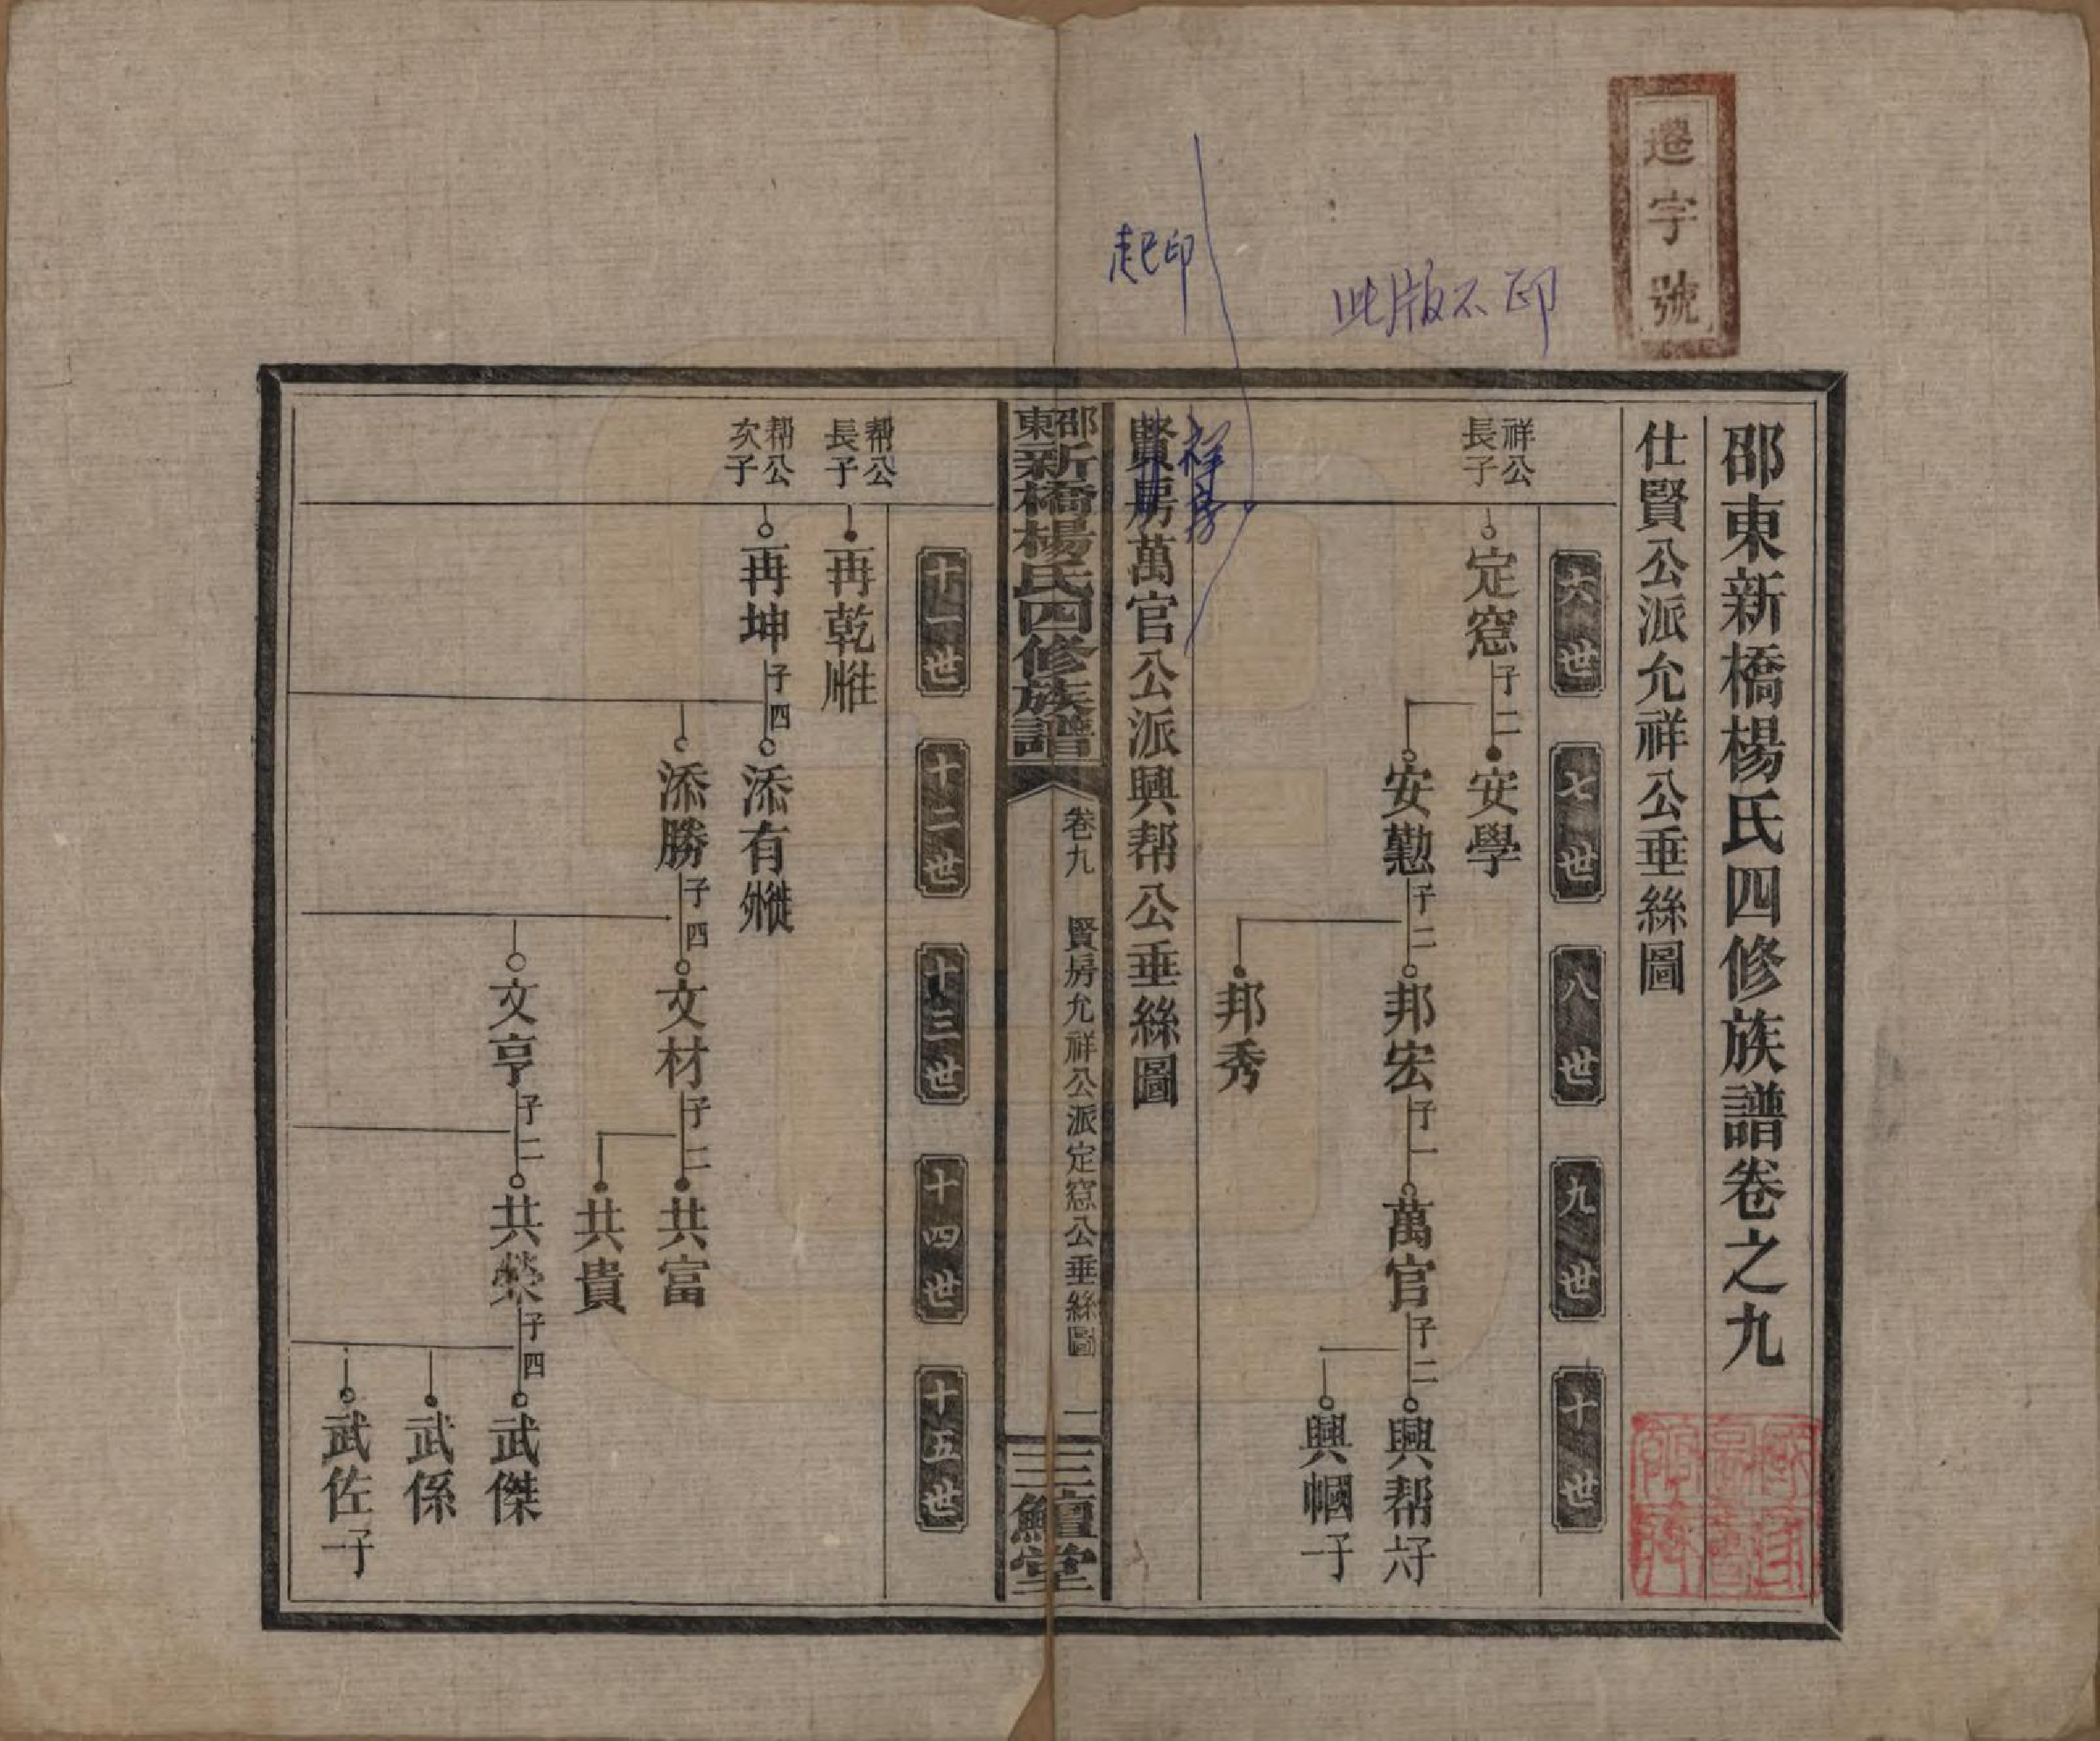 遷字號
此版不印
起印
邵東新橋楊氏四修族譜卷之九
仕賢公派允祥公垂絲圖
六世 七世 八世 九世 十世
祥公長子
定窓 子二 安學
安勤 子二 邦宏 子一 萬官 子二 興帮 六子
興幗 一子
邦秀
祥房
賢房萬官公派興帮公垂絲圖
邵東新橋楊氏四修族譜
卷九 賢房允祥公派定窓公垂絲圖 一
三鱣堂
十一世 十二世 十三世 十四世 十五世
帮公長子
再乾
帮公次子
再坤 子四 添有
添勝 子四 文材 子二 共富
共貴
文亨 子二 共榮 子四 武傑
武係
武佐 一子